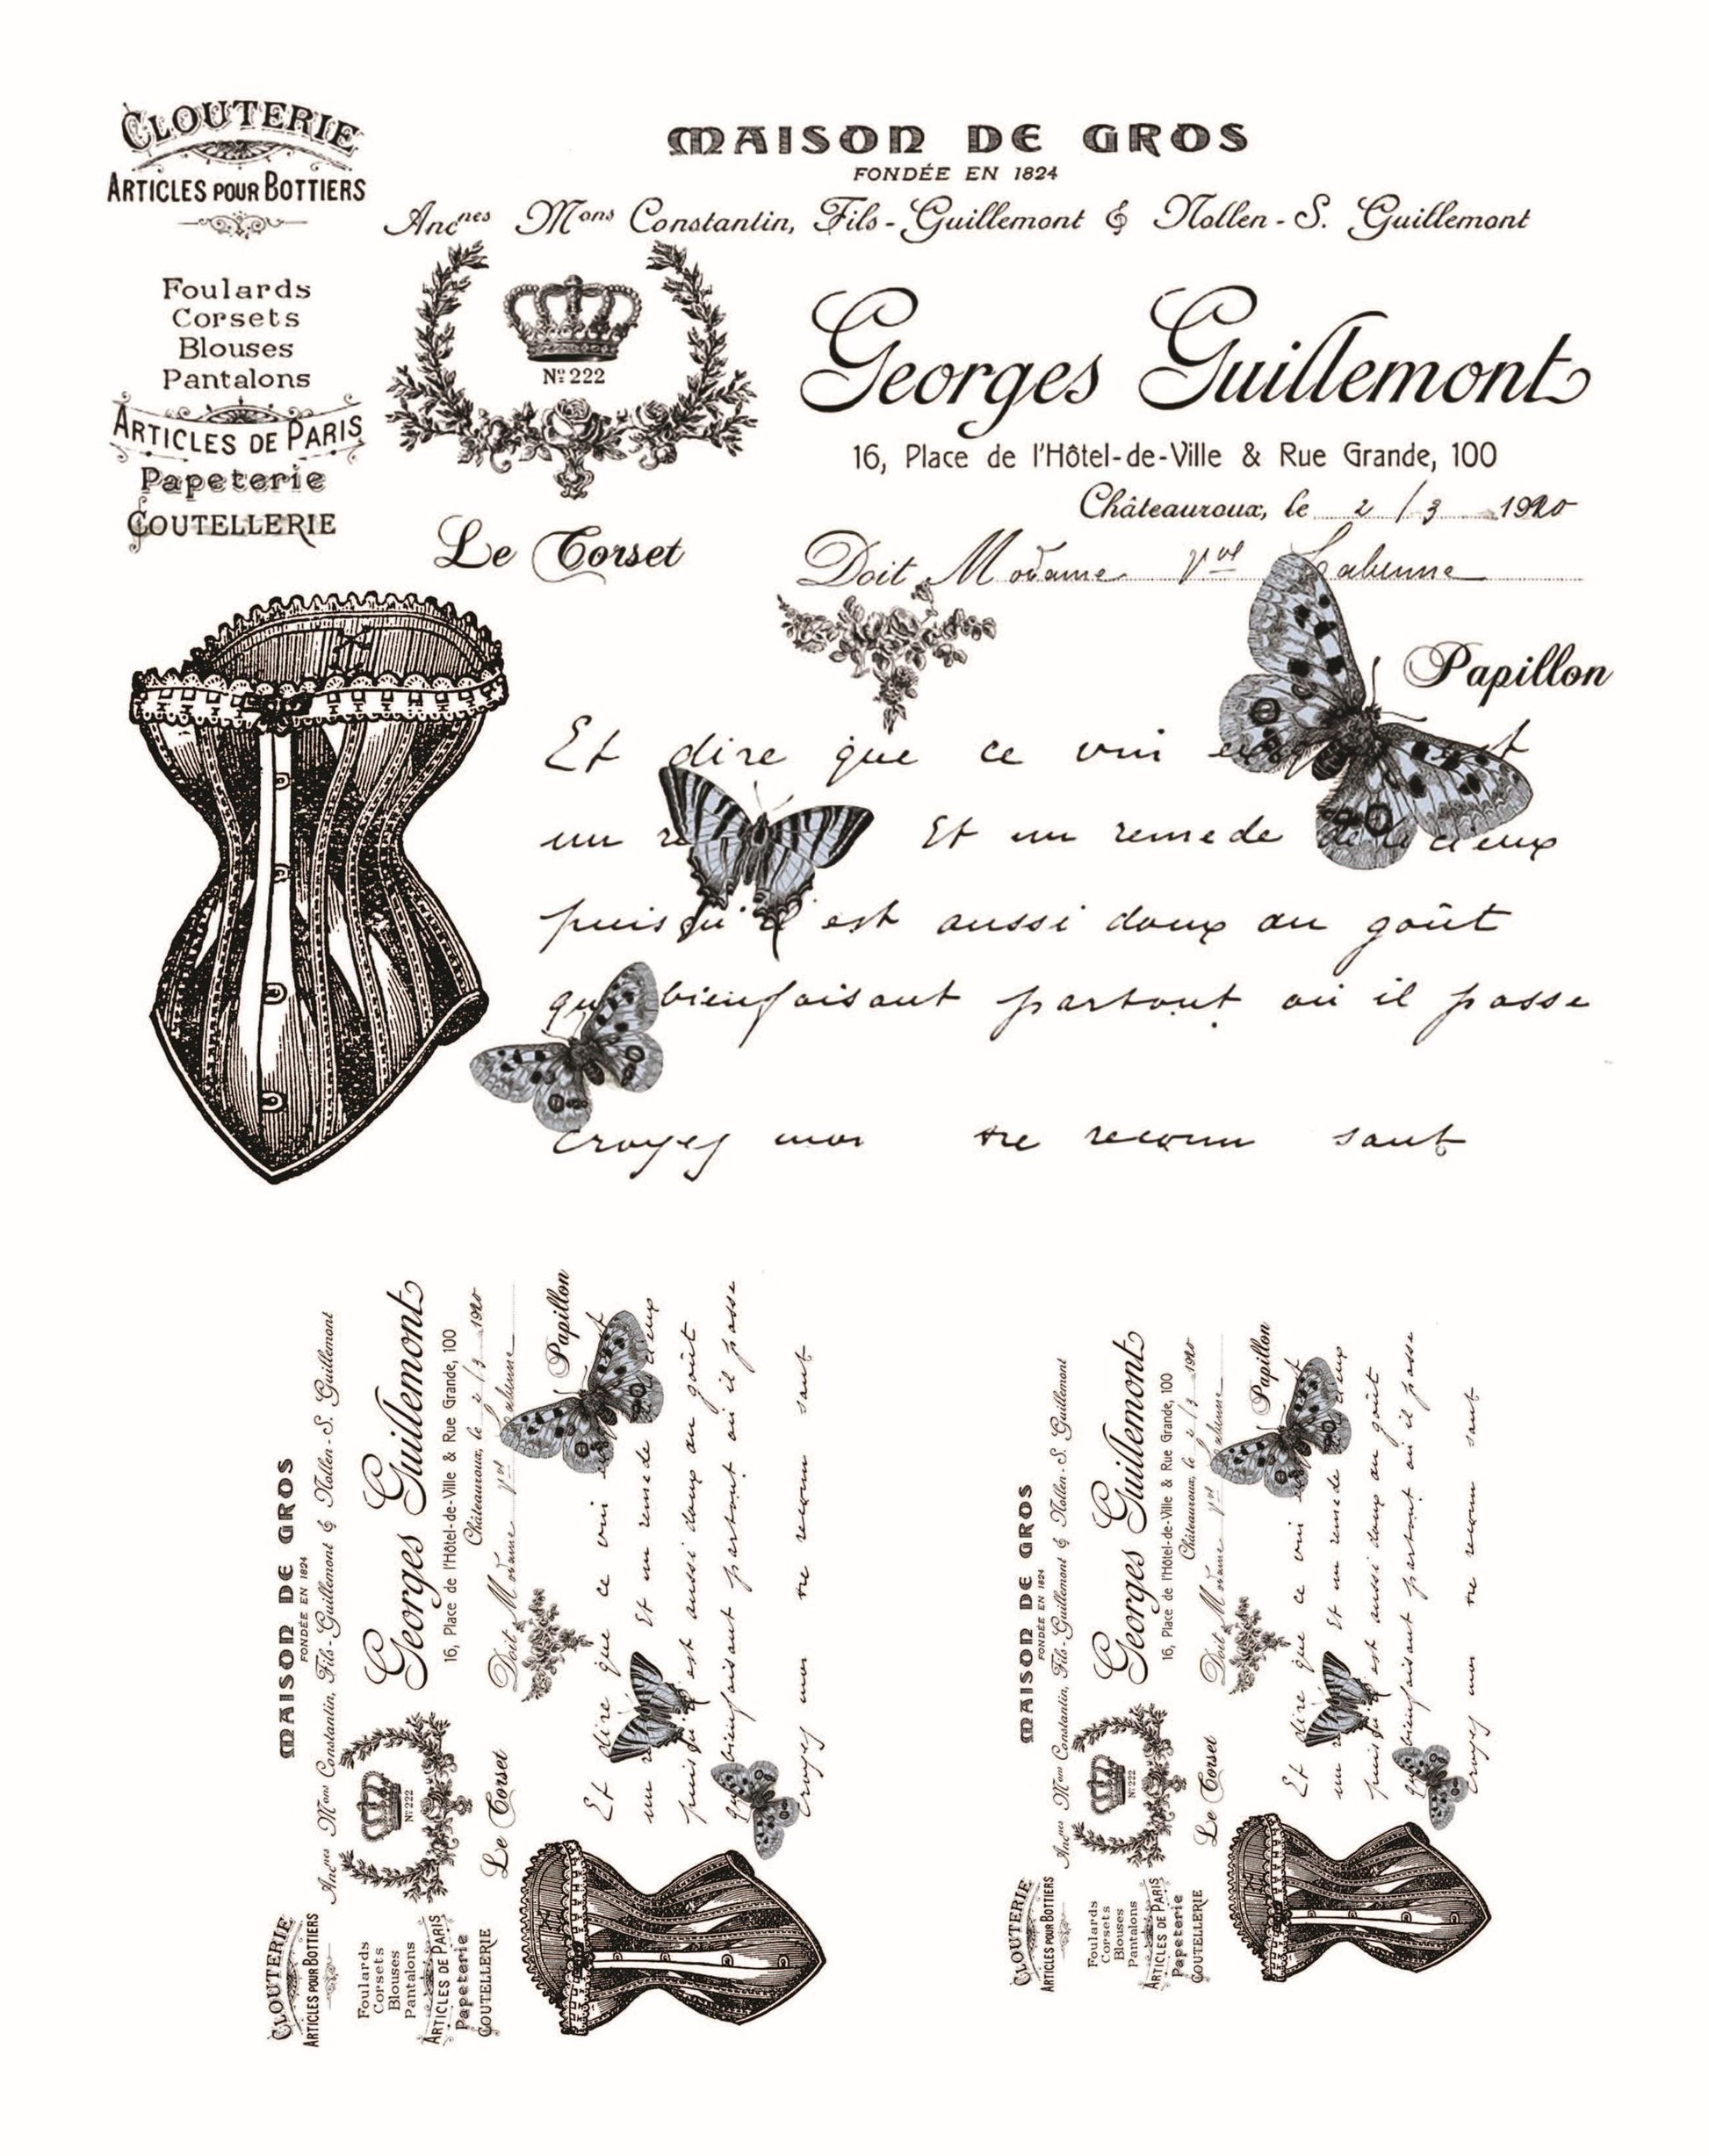 CLOUTERIE
ARTICLES POUR BOTTIERS
MAISON DE GROS
FONDÉE EN 1824
Ancnes Mons Constantin, Fils - Guillemont & Nollen - S. Guillemont
Foulards
Corsets
Blouses
Pantalons
ARTICLES DE PARIS
Papeterie
COUTELLERIE
Nº 222
Georges Guillemont
16, Place de l'Hôtel-de-Ville & Rue Grande, 100
Châteauroux, le 2/3 1920
Le Corset
Doit Madame Vve
Papillon
Et dire que ce vin
un Et un remede
puisqu'il est aussi doux au goût
que bienfaisant partout où il passe
Croyez moi tre reconn sant
MAISON DE GROS
FONDÉE EN 1824
Ancnes Mons Constantin, Fils - Guillemont & Nollen - S. Guillemont
CLOUTERIE
ARTICLES POUR BOTTIERS
Foulards
Corsets
Blouses
Pantalons
ARTICLES DE PARIS
Papeterie
COUTELLERIE
Nº 222
Georges Guillemont
16, Place de l'Hôtel-de-Ville & Rue Grande, 100
Châteauroux, le 2/3 1920
Le Corset
Doit Madame Vve
Papillon
Et dire que ce vin
un Et un remede
puisqu'il est aussi doux au goût
que bienfaisant partout où il passe
Croyez moi tre reconn sant
MAISON DE GROS
FONDÉE EN 1824
Ancnes Mons Constantin, Fils - Guillemont & Nollen - S. Guillemont
CLOUTERIE
ARTICLES POUR BOTTIERS
Foulards
Corsets
Blouses
Pantalons
ARTICLES DE PARIS
Papeterie
COUTELLERIE
Nº 222
Georges Guillemont
16, Place de l'Hôtel-de-Ville & Rue Grande, 100
Châteauroux, le 2/3 1920
Le Corset
Doit Madame Vve
Papillon
Et dire que ce vin
un Et un remede
puisqu'il est aussi doux au goût
que bienfaisant partout où il passe
Croyez moi tre reconn sant